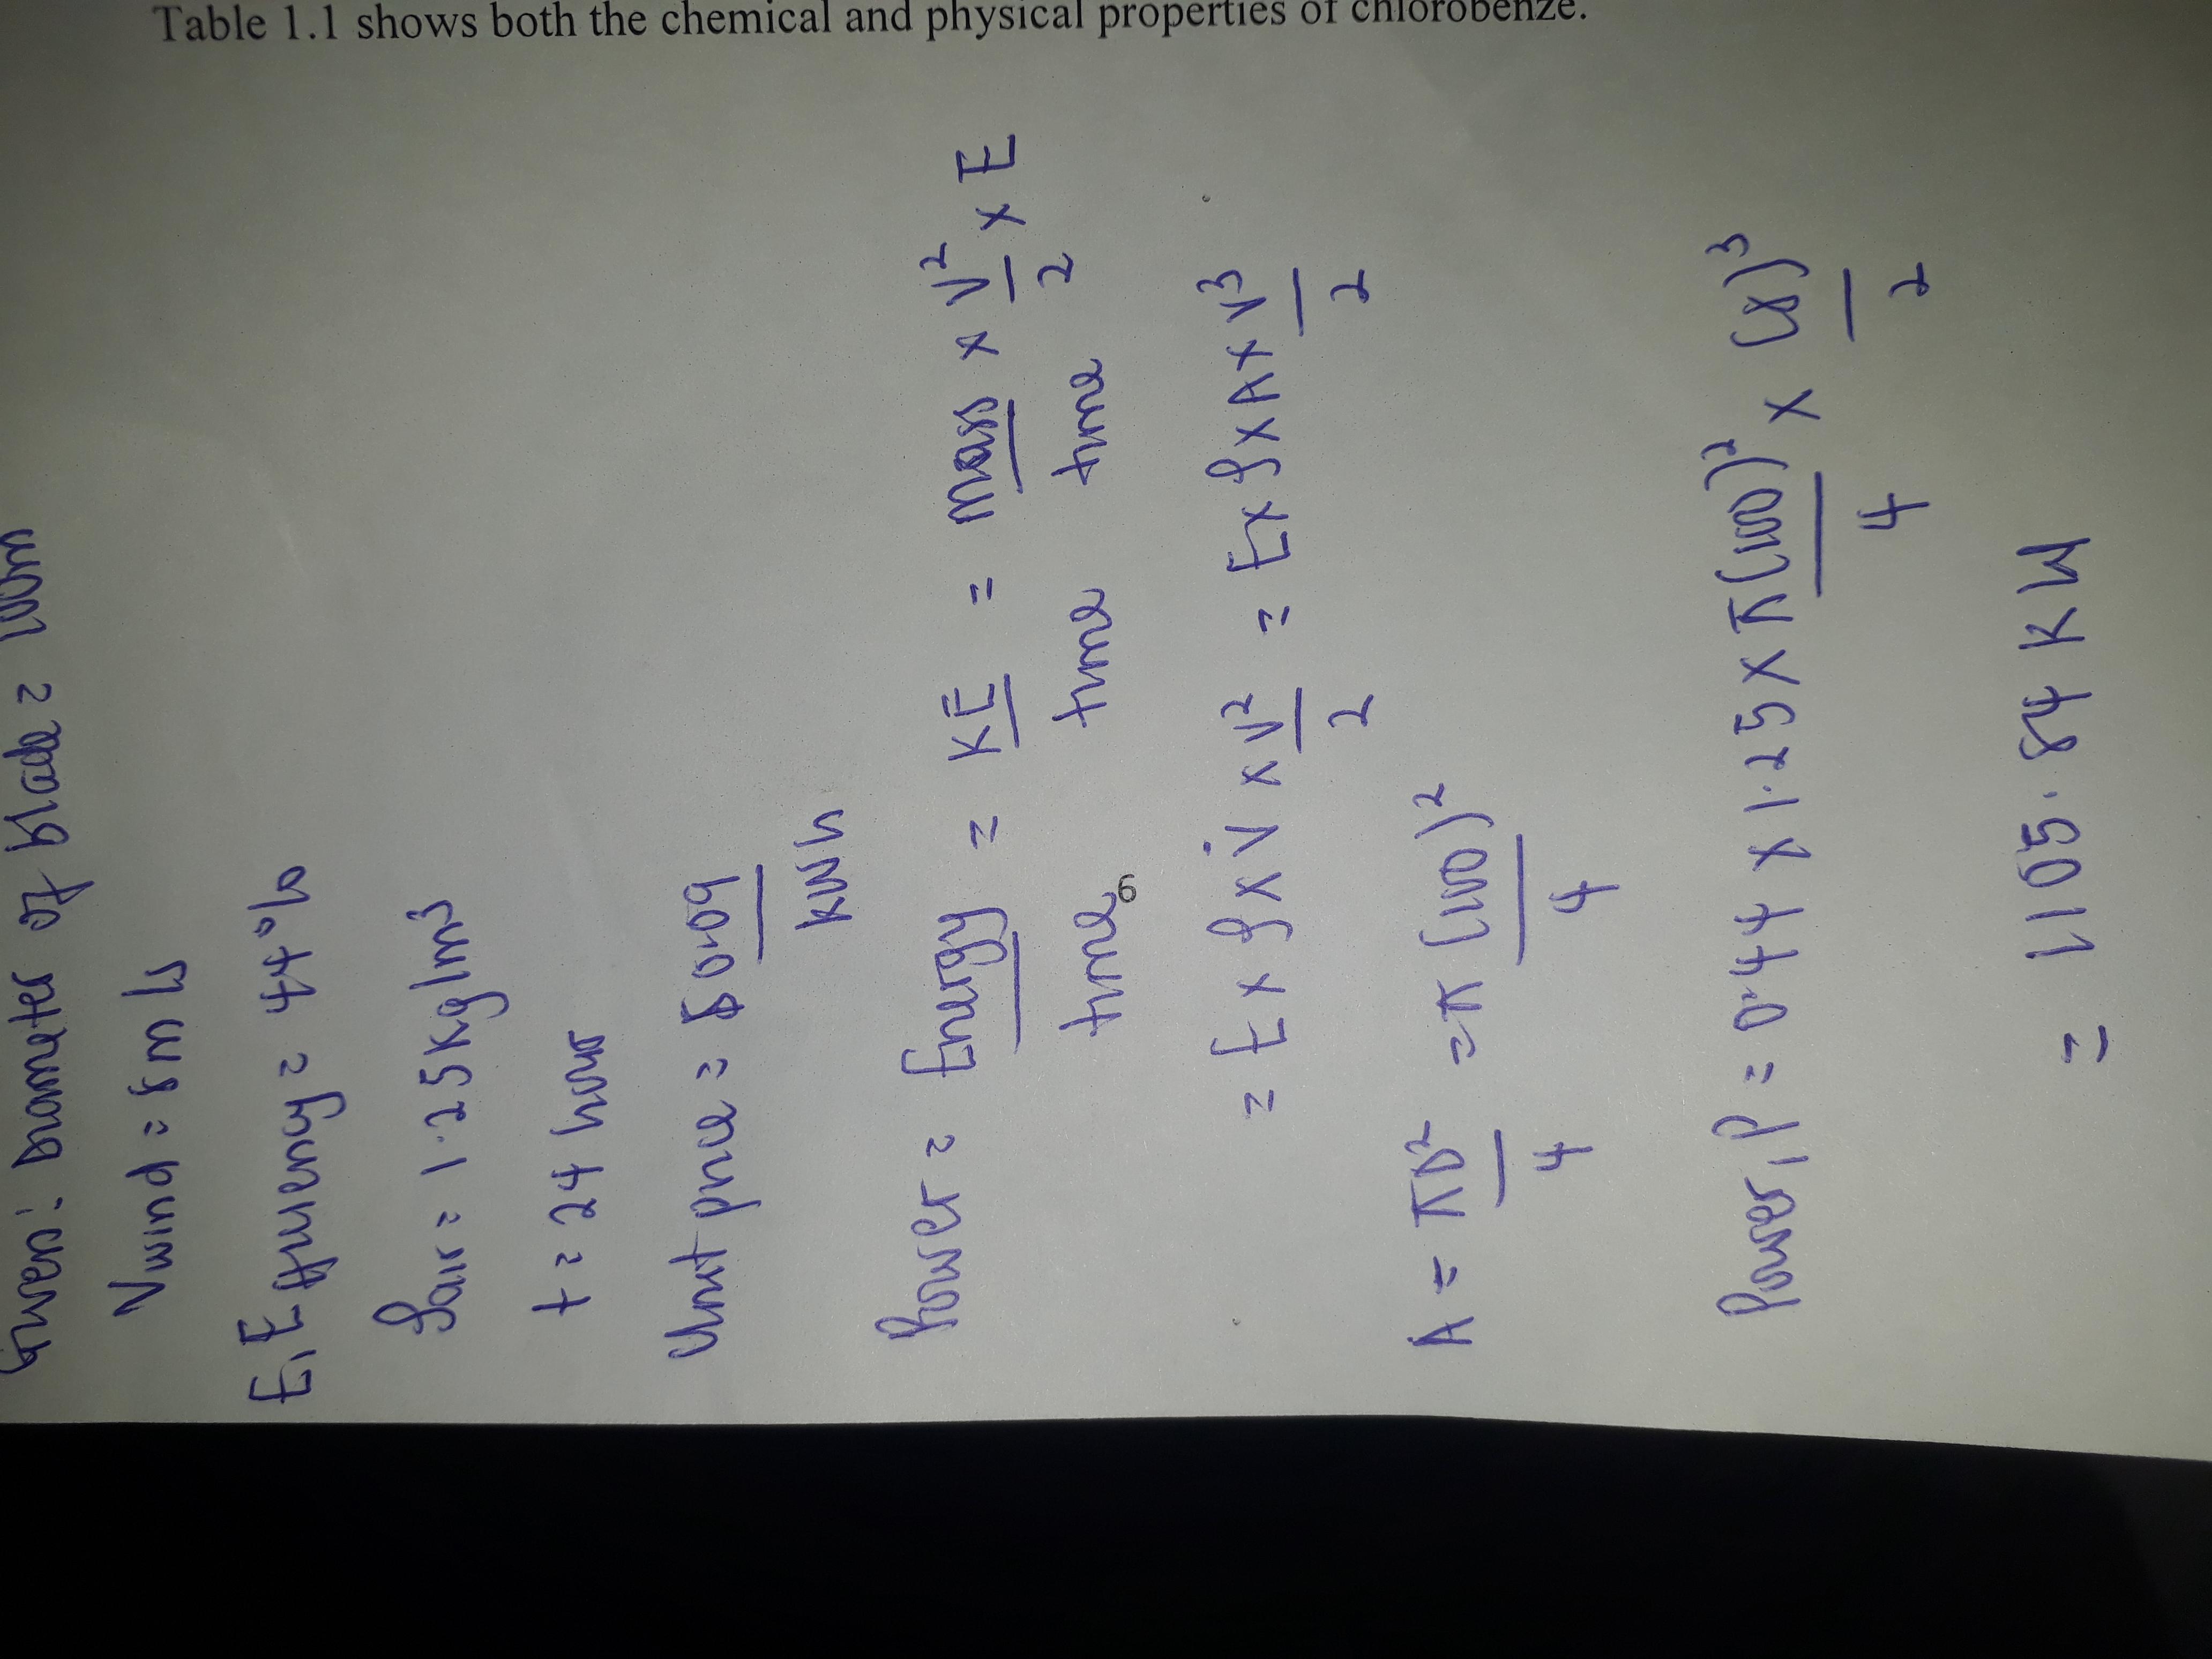 Table 1.1 shows both the chemical and physical properties of chlorobenze.
Given: Diameter of blade = 100m
Vwind = 8 m/s
E, Efficiency = 44%
ρair = 1.25 kg/m³
t = 24 hour
Unit price = $0.09/kWh
Power = Energy/time = KE/time = mass/time × V²/2 × E
= E × ρ × V̇ × V²/2 = E × ρ × A × V³/2
A = πD²/4 = π(100)²/4
Power, P = 0.44 × 1.25 × π(100)²/4 × (8)³/2
= 1105.84 kW
6